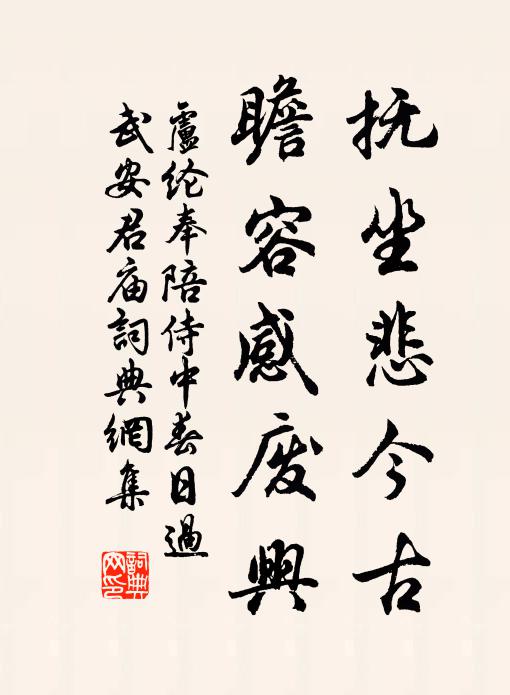 抚坐悲今古
瞻容感废興
盧纶奉陪侍中春日過
武安君庙詞典網集
詞典网印